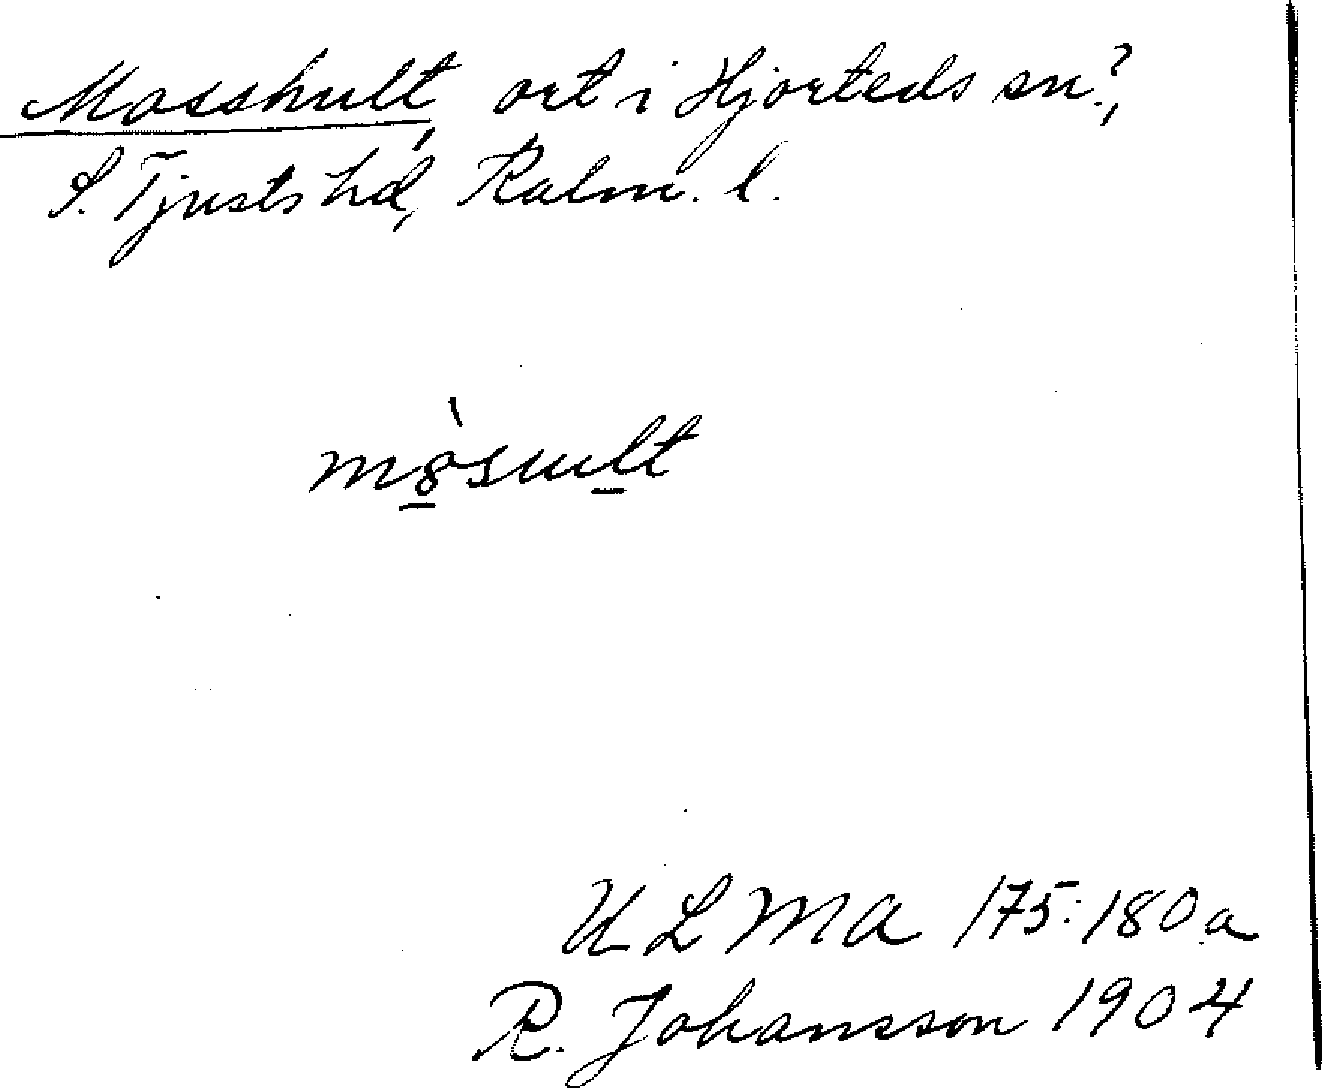 Mosshult, ort i Hjorteds sn?,
S. Tjusts hd, Kalm. l.
mo̠̍sult
ULMA 175:180a
R. Johansson 1904